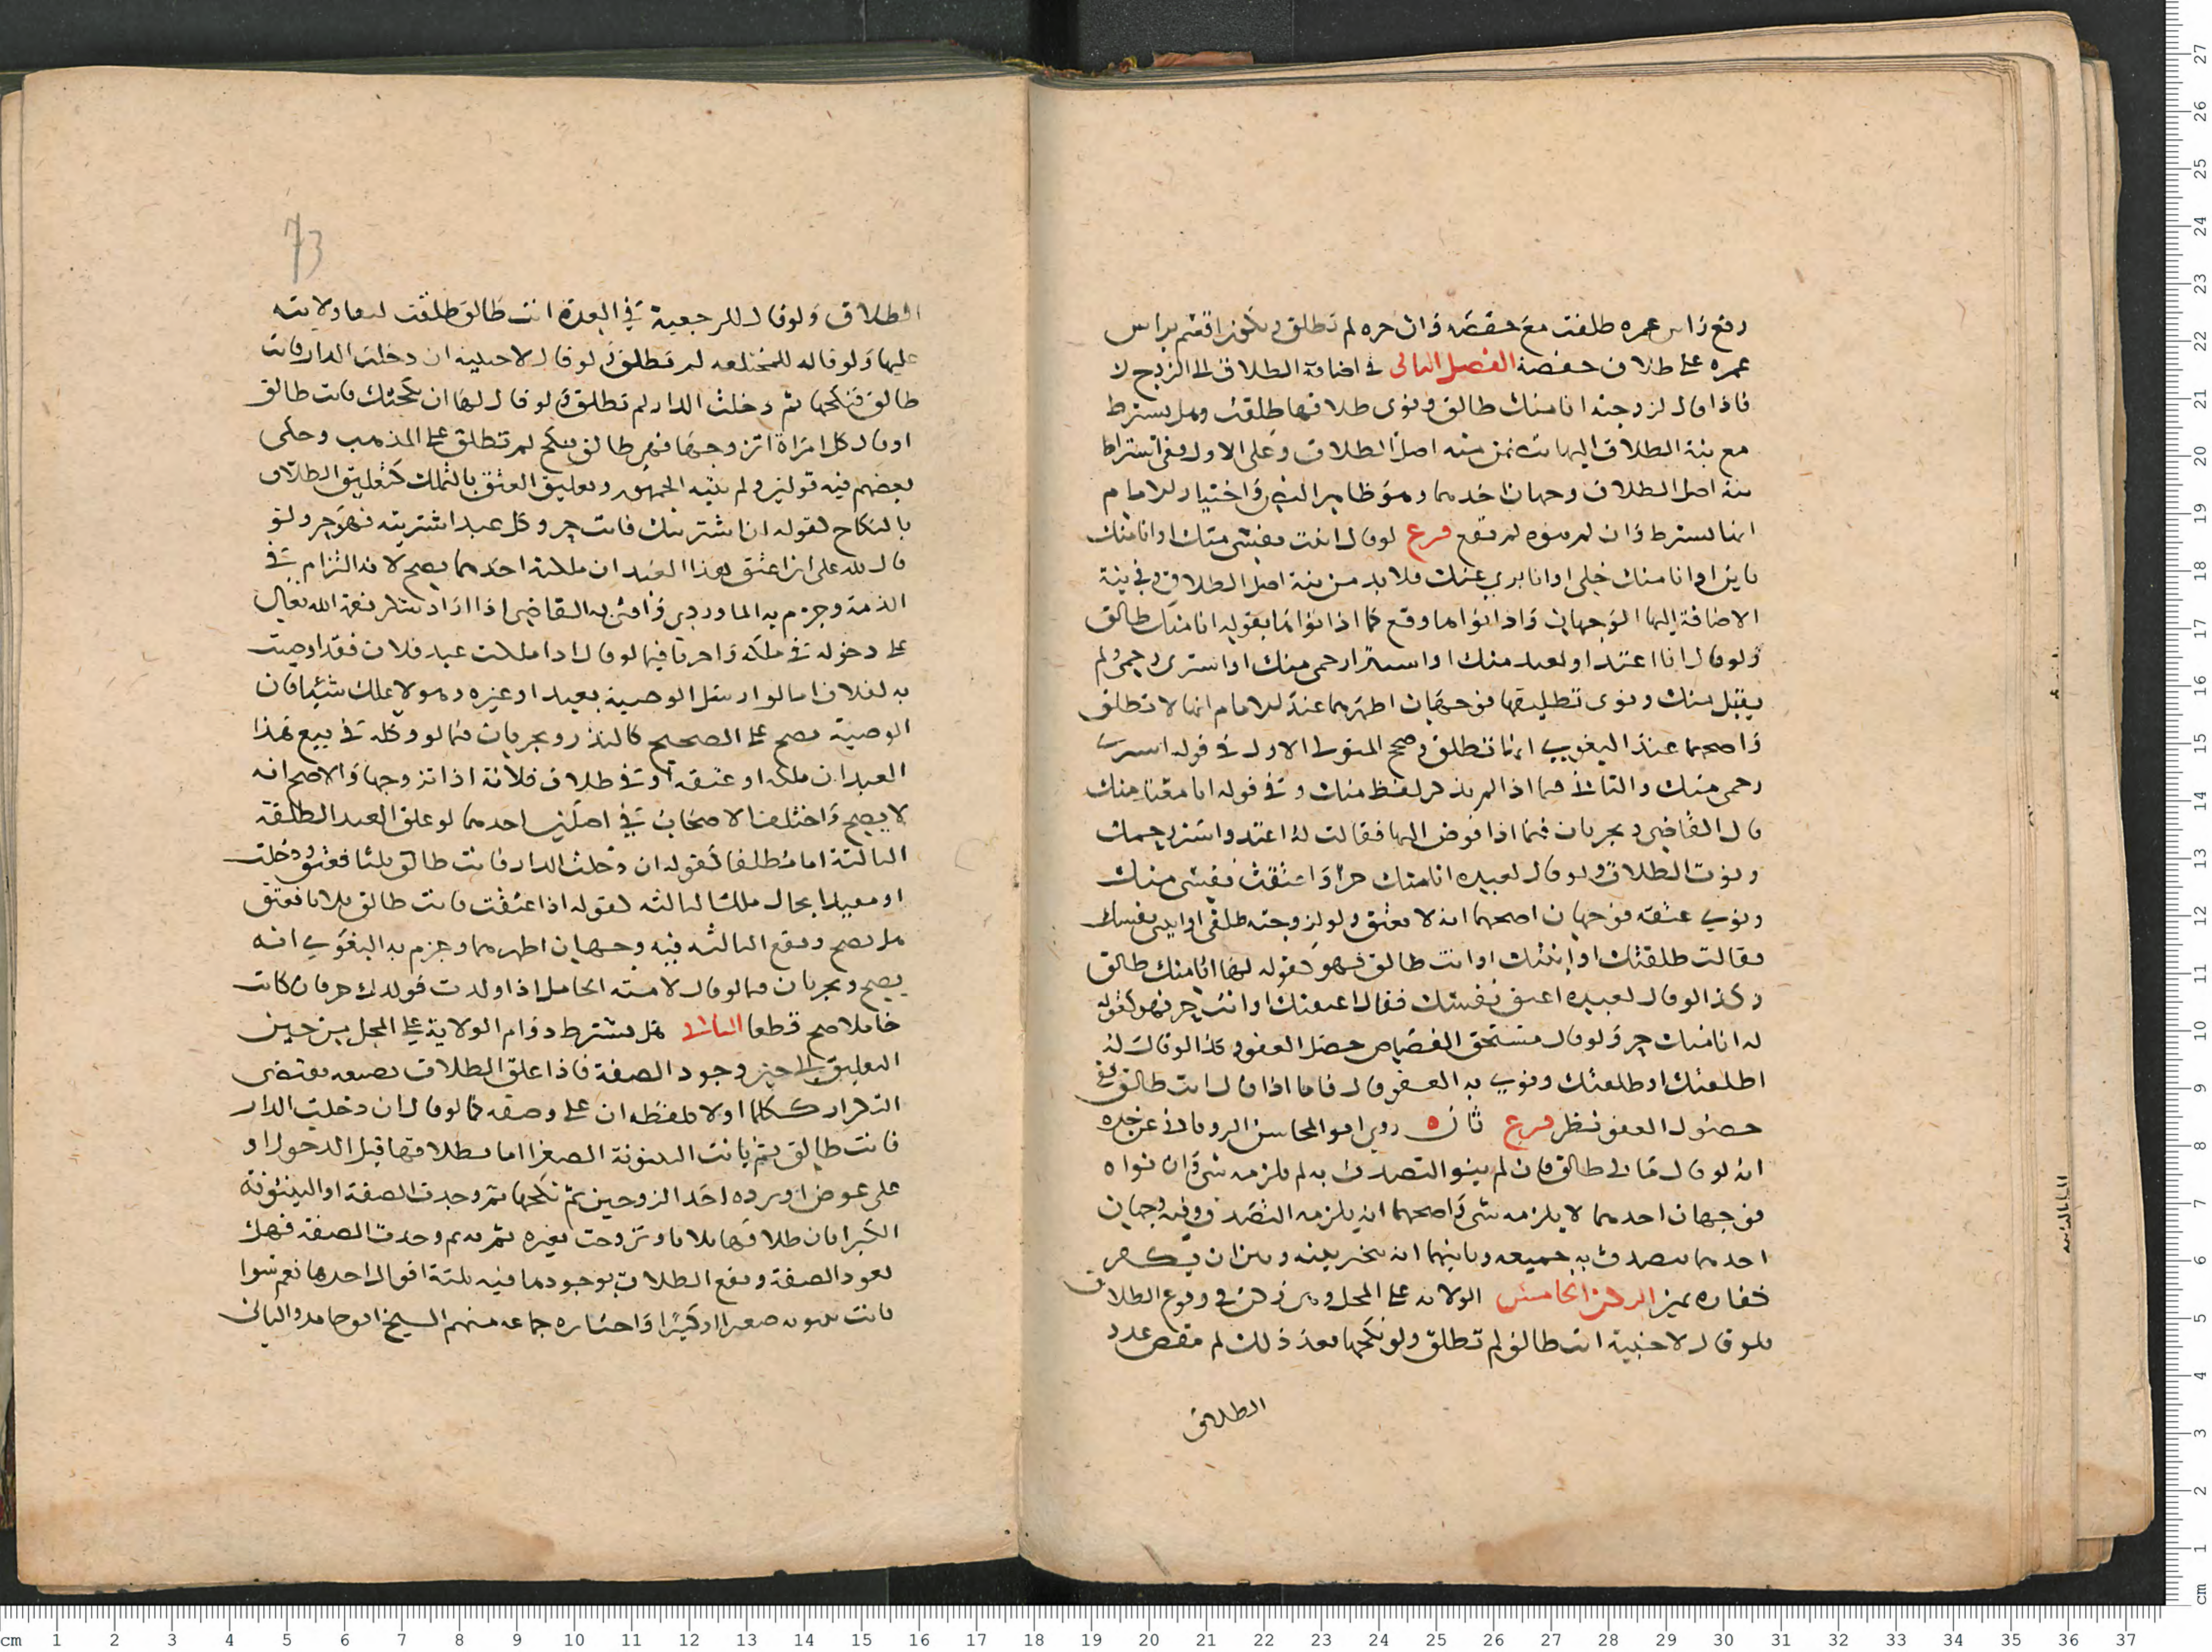 وقع راس عمره طلقت مع حفصة وان حره لم تطلق ويكون اقعم براس
عمره على طلاق حفصة الفصل الثاني في اضافة الطلاق الى الزوج لا
فاذا قال لزوجته انا منك طالق ونوى طلاقها طلقت وهل يشترط
مع نية الطلاق اليها نية اصل الطلاق وعلى الاول ففي اشتراط
نية اصل الطلاق وجهان احدهما وهو ظاهر النص واختيار الامام
انها تشترط وان لم ينوه لم تقع فرع لو قال انت نفسى منك او انا منك
باين او انا منك خلي او انا بري منك فلا بد من نية اصل الطلاق وفي نية
الاضافة اليها الوجهان واذا نواها وقع كما اذا نواها بقوله انا منك طالق
ولو قال انا اعتد او لعبد منك او استبرا رحمى منك او استبرى رحمي ولم
يقل منك ونوى تطليقها فوجهان اظهرهما عند الامام انها لا تطلق
واصحهما عند البغوي انها تطلق وصحح المتولي الاول في قوله استبرى
رحمى منك والثاني فيما اذا لم يذكر لفظ منك وفي قوله انا معتد منك
قال القاضي ويجريان فيما اذا فوض اليها فقالت له اعتد واستبر رحمك
ونوت الطلاق ولو قال لعبده انا منك حر او اعتقت نفسى منك
ونوى عتقه فوجهان اصحهما انه لا يعتق ولو لزوجته طلقى او ابيني نفسك
فقالت طلقتك او ابنتك او انت طالق فهو كقوله لها انا منك طالق
وكذا لو قال لعبده اعتق نفسك فقال اعتقتك او انت حر فهو كقوله
له انا منك حر ولو قال مستحق القصاص حصل العفو وكذا لو قال له
اطلقتك او طلقتك ونوى به العفو قال فاما اذا قال انت طالق ففي
حصول العفو نظر فرع ثان روى ابو المحاسن الروياني عن جده
انه لو قال مالي طالق فان لم ينو التصدق به لم يلزمه شى وان نواه
فوجهان احدهما لا يلزمه شى واصحهما انه يلزمه التصدق وفيه وجهان
احدهما يتصدق به جميعه وثانيهما انه يتخير بينه وبين ان يكفر
كفارة يمين الركن الخامس الولاية على المحل وهي ركن في وقوع الطلاق
فلو قال لاجنبية انت طالق لم تطلق ولو نكحها بعد ذلك لم ينقص عدد
الطلاق
73
الطلاق ولو قال للرجعية في العدة انت طالق طلقت لبقا ولايته
عليها ولو قاله للمختلعه لم تطلق ولو قال لاجنبية ان دخلت الدار فانت
طالق فنكحها ثم دخلت الدار لم تطلق ولو قال لها ان نكحتك فانت طالق
او قال كل امراة اتزوجها فهي طالق فنكح لم تطلق على المذهب وحكى
بعضهم فيه قولين ولم يثبته الجمهور وتعليق العتق بالتملك كتعليق الطلاق
بالنكاح لقوله ان اشتريتك فانت حر وكل عبد اشتريته فهو حر ولو
قال لله علي ان اعتق هذا العبد ان ملكته احدهما يصح لانه التزام في
الذمة وجزم به الماوردي وافتى به القاضي اذا اراد شكر نعمة الله تعالى
على دخوله في ملكه واجرياه فيما لو قال اذا ملكت عبد فلان فقد اوصيت
به لفلان اما لو ارسل الوصية بعبد او غيره وهو لا يملك شيئا فان
الوصية تصح على الصحيح كالنذر ويجريان فيما لو وكله في بيع هذا
العبد ان ملكه او عتقه او في طلاق فلانة اذا تزوجها والاصح انه
لا يصح واختلف الاصحاب في اصلين احدهما لو علق العبد الطلقة
الثالثة اما مطلقا كقوله ان دخلت الدار فانت طالق ثلثا فعتق ودخلت
او مقيدا بحال ملك الثالثه كقوله اذا عتقت فانت طالق ثلاثا فعتق
هل يصح وتقع الثالثه فيه وجهان اظهرهما وجزم به البغوي انه
يصح ويجريان فيما لو قال لامته الحامل اذا ولدت فولدك حر فان كانت
حاملا صح قطعا الثاني هل يشترط دوام الولاية على المحل من حين
التعليق الى حين وجود الصفة فاذا علق الطلاق بصيغه تقتضى
التكرار ككلما او لا كلفظه ان على وصفه كما لو قال ان دخلت الدار
فانت طالق ثم بانت البينونة الصغرا اما بطلاقها قبل الدخول او
على عوض او برده احد الزوجين ثم نكحها ثم وجدت الصفة او البينونة
الكبرا بان طلاقها ثلاثا وتزوجت بغيره ثم به ثم وجدت الصفة فهل
تعود الصفة ويقع الطلاق بوجودها فيه ثلثة اقوال احدها نعم سوا
كانت بينونه صغيرا او كبيرا واختاره جماعه منهم الشيخ ابو حامد والثاني